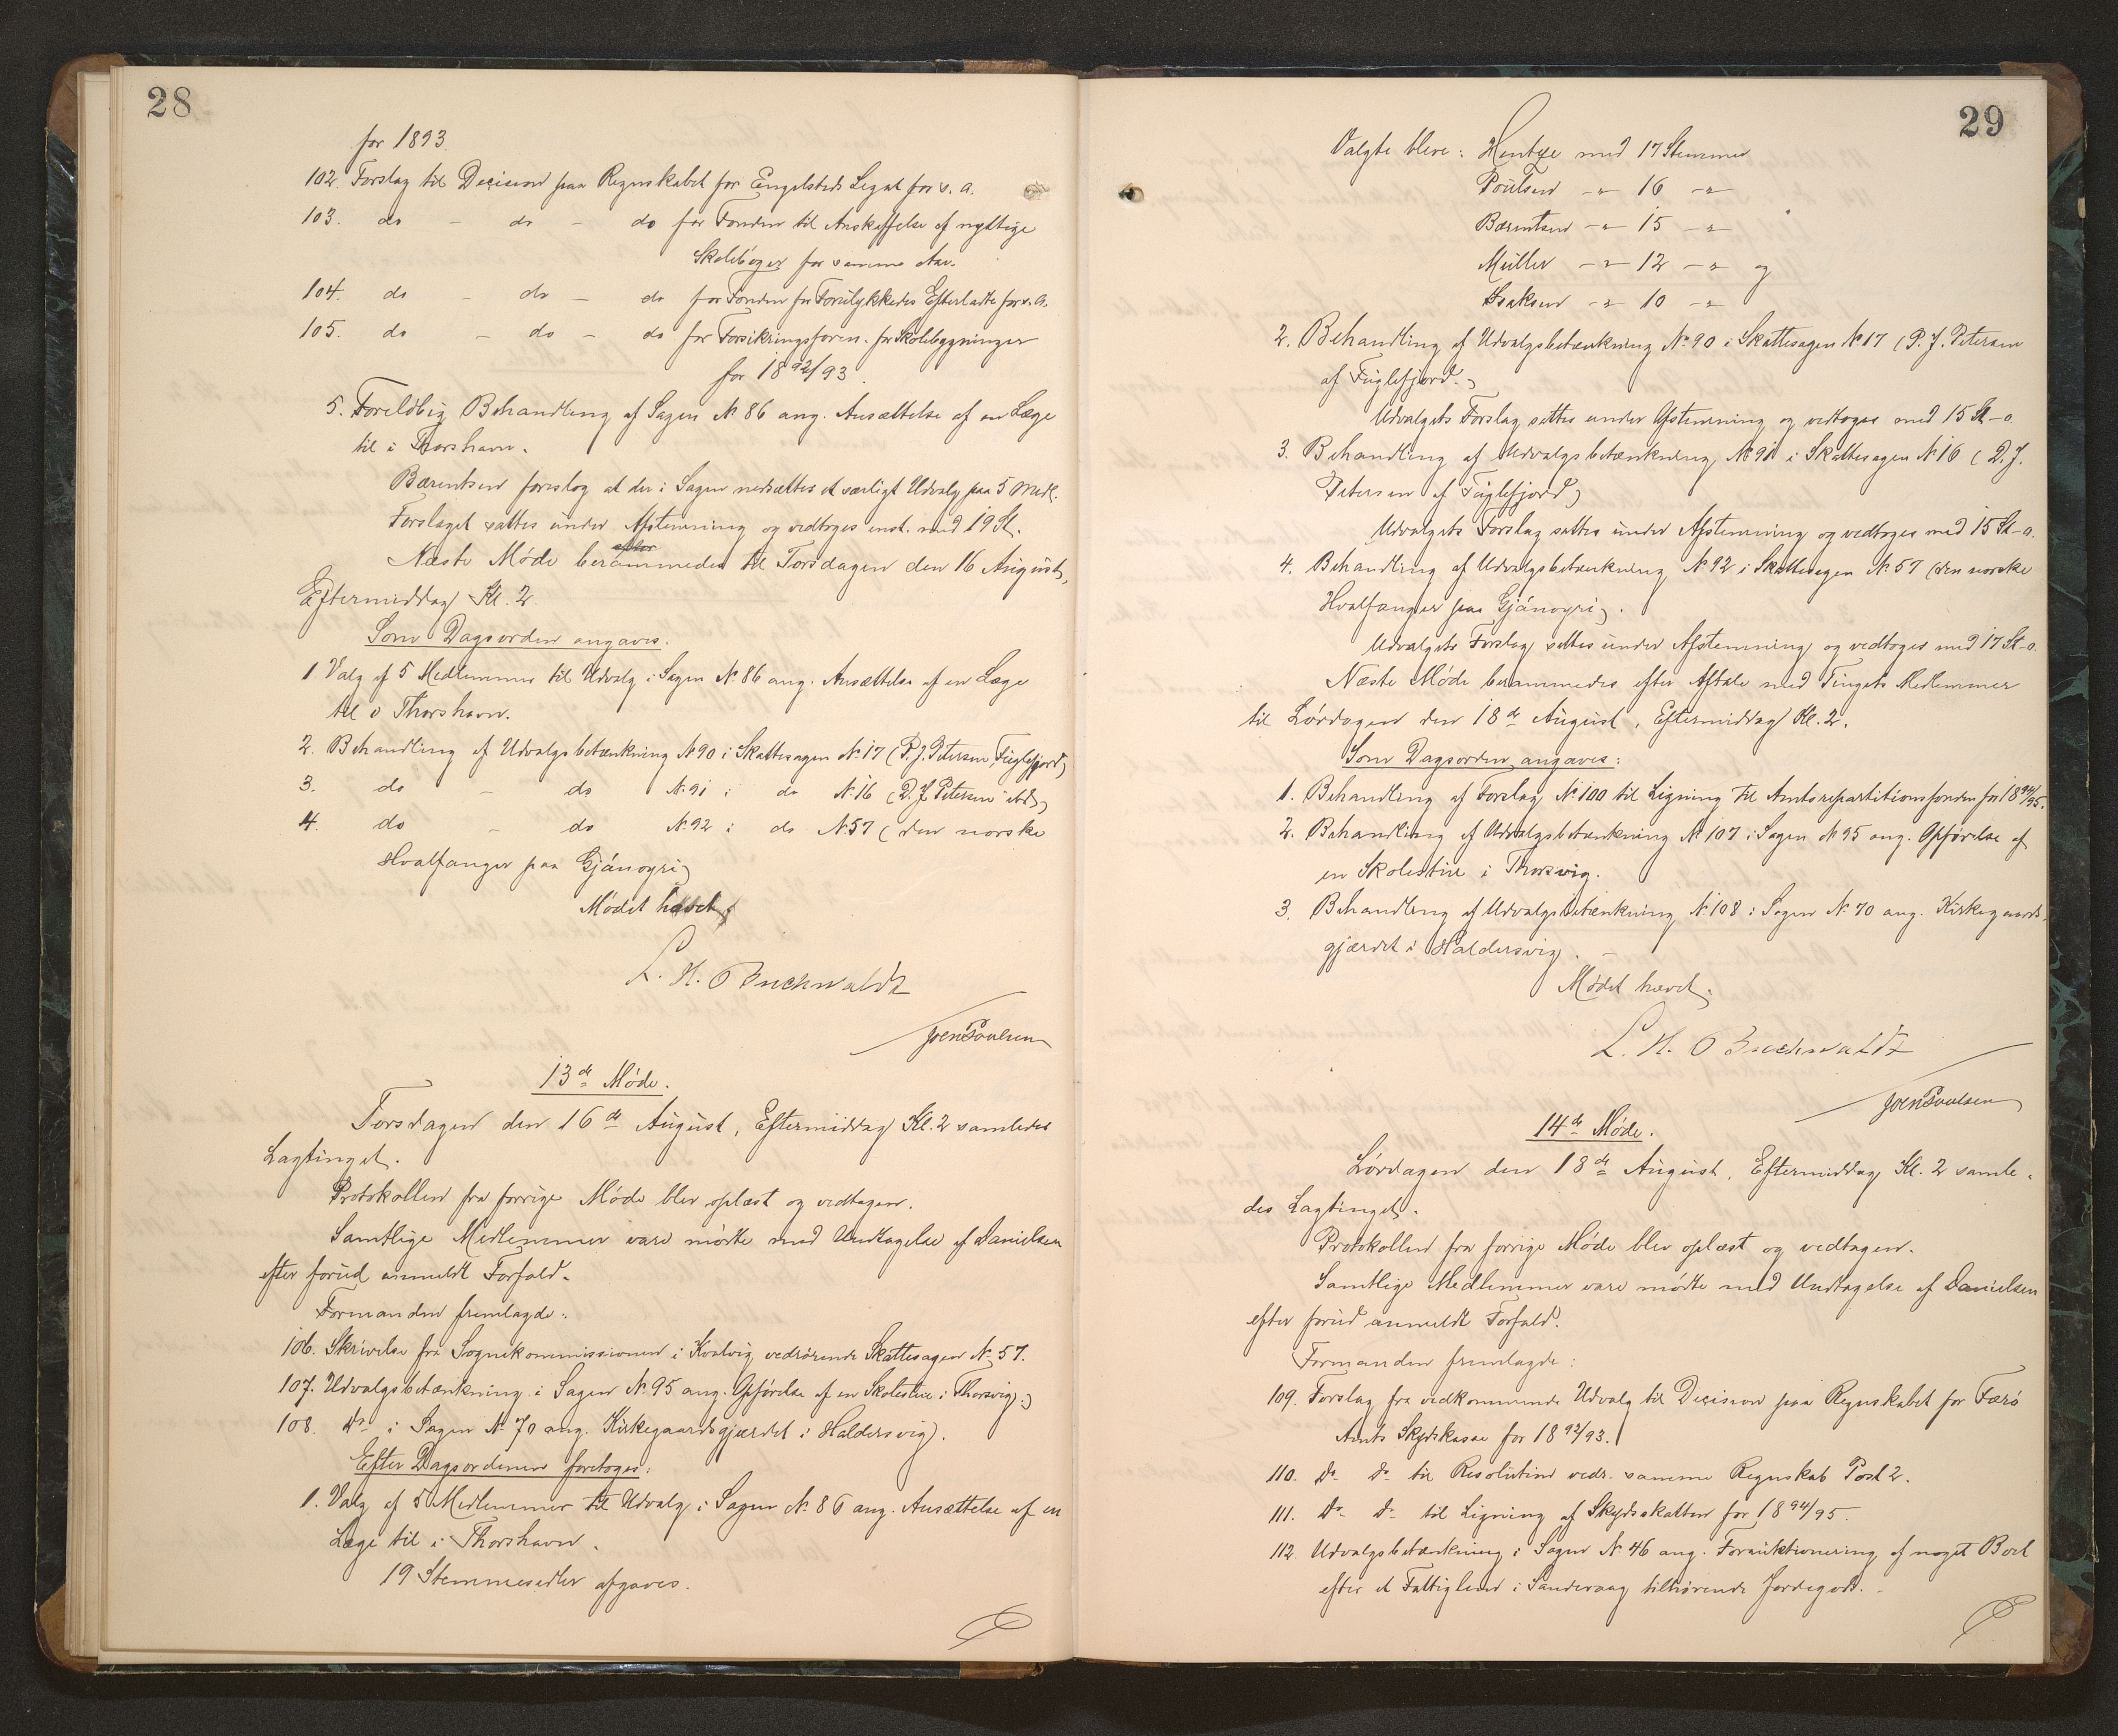 28
for 1893.
102. Forslag til Decision paa Regnskabet for Engelsteds Legat for s. A.
103. do - do - do for Fonden til Anskaffelse af nyttige
Skolebøger for samme Aar.
104. do - do - do for Fonden for Forulykkedes Efterladte for s. A.
105. do - do - do for Forsikringsforen. for Skolebygninger
for 1892/93.
5. Foreløbig Behandling af Sagen No 86 ang. Ansættelse af en Læge
til i Thorshavn.
Bærentsen foreslog at der i Sagen nedsættes et særligt Udvalg paa 5 Medl.
Forslaget sattes under Afstemning og vedtoges enst. med 19 St.
Næste Møde berammedes til Torsdagen den 16 August,
Eftermiddag Kl. 2.
Som Dagsorden angaves.
1 Valg af 5 Medlemmer til Udvalg i Sagen No 86 ang. Ansættelse af en Læge
til i Thorshavn.
2. Behandling af Udvalgsbetænkning No 90 i Skattesagen No 17 (P. J. Petersen, Fuglefjord)
3. do - do No 91 i do No 16 (D. J. Petersen ibd.)
4. do - do No 92 i do No 57 (den norske
Hvalfanger paa Gjánoyri)
Mødet hævet.
L. H. O Buchwaldt
Joen Poulsen
13de Møde.
Torsdagen den 16de August, Eftermiddag Kl. 2 samledes
Lagtinget.
Protokollen fra forrige Møde blev oplæst og vedtagen.
Samtlige Medlemmer vare mødte med Undtagelse af Danielsen
efter forud anmeldt Forfald.
Formanden fremlagde:
106. Skrivelse fra Sognekommissionen i Kvalvig vedrørende Skattesagen No 57.
107. Udvalgsbetænkning i Sagen No 95 ang. Opførelse af en Skolestue i Thorsvig.
108. Do i Sagen No 70 ang. Kirkegaardsgjærdet i Haldersvig.
Efter Dagsordenen foretoges:
1. Valg af 5 Medlemmer til Udvalg i Sagen No 86 ang. Ansættelse af en
Læge til i Thorshavn.
19 Stemmesedler afgaves.
29
Valgte bleve: Hentze med 17 Stemmer
Poulsen -"- 16 -"-
Bærentsen -"- 15 -"-
Müller -"- 12 -"- og
Isaksen -"- 10 -"-
2. Behandling af Udvalgsbetænkning No 90 i Skattesagen No 17 (P. J. Petersen
af Fuglefjord.)
Udvalgets Forslag sattes under Afstemning og vedtoges med 15 St-o.
3. Behandling af Udvalgsbetænkning No 91 i Skattesagen No 16 (D. J.
Petersen af Fuglefjord)
Udvalgets Forslag sattes under Afstemning og vedtoges med 15 St-o.
4. Behandling af Udvalgsbetænkning No 92 i Skattesagen No 57 (den norske
Hvalfanger paa Gjánoyri).
Udvalgets Forslag sattes under Afstemning og vedtoges med 17 St-o.
Næste Møde berammedes efter Aftale med Tingets Medlemmer
til Lørdagen den 18de August, Eftermiddag Kl. 2.
Som Dagsorden angaves:
1. Behandling af Forslag No 100 til Ligning til Amtsrepartitionsfonden for 1894/95.
2. Behandling af Udvalgsbetænkning No 107 i Sagen No 95 ang. Opførelse af
en Skolestue i Thorsvig.
3. Behandling af Udvalgsbetænkning No 108 i Sagen No 70 ang. Kirkegaards-
gjærdet i Haldersvig.
Mødet hævet.
L. H. O Buchwaldt
Joen Poulsen
14de Møde.
Lørdagen den 18de August, Eftermiddag Kl. 2 samle-
des Lagtinget.
Protokollen fra forrige Møde blev oplæst og vedtagen.
Samtlige Medlemmer vare mødte med Undtagelse af Danielsen
efter forud anmeldt Forfald.
Formanden fremlagde:
109. Forslag fra vedkommende Udvalg til Decision paa Regnskabet for Færø
Amts Skydskasse for 1892/93.
110. Do Do til Resolution vedr. samme Regnskab Post 2.
111. Do Do til Ligning af Skydsskatten for 1894/95.
112. Udvalgsbetænkning i Sagen No 46 ang. Forauktionering af noget Boel
efter et Fattiglem i Sandevaag tilhørende Jordegods.